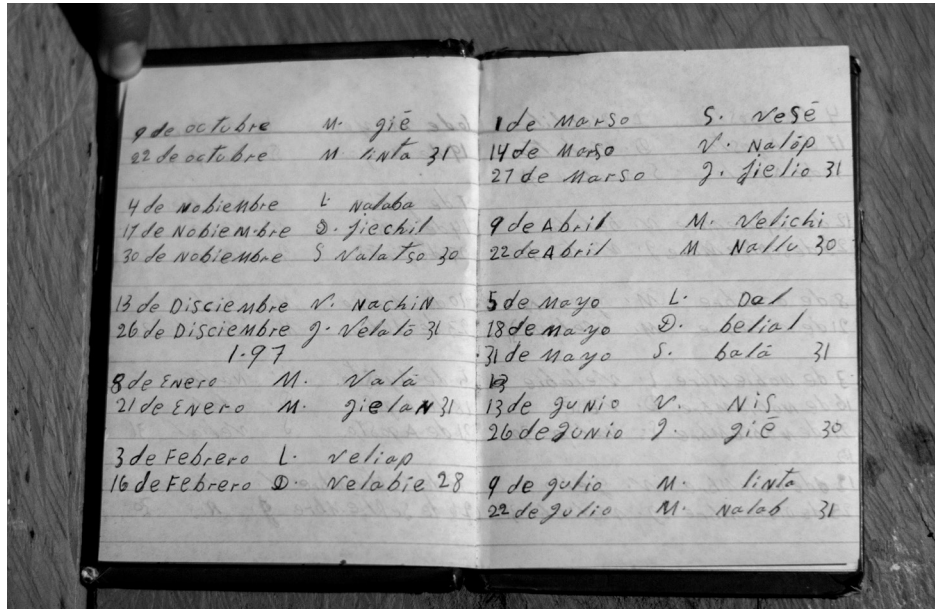 9 de octubre M. gie
22 de octubre M linta 31
4 de Nobiembre L. Nalaba
17 de Nobiembre D. jiechil
30 de Nobiembre S Valatso 30
13 de Disciembre V. Nachin
26 de Disciembre J. Velatō 31
1.97
8 de Enero M. Valā
21 de Enero M. gielan 31
3 de Febrero L. veliap
16 de Febrero D. Velabie 28
1 de Marso S. Vesē
14 de Marso V. Nalōp
27 de Marso J. jielio 31
9 de Abril M. Velichi
22 de Abril M Nallu 30
5 de Mayo L. Dal
18 de Mayo D. belial
31 de Mayo S. balā 31
13 de Junio V. Nis
26 de Junio J. giē 30
9 de Julio M. linta
22 de Julio M. Nalab 31